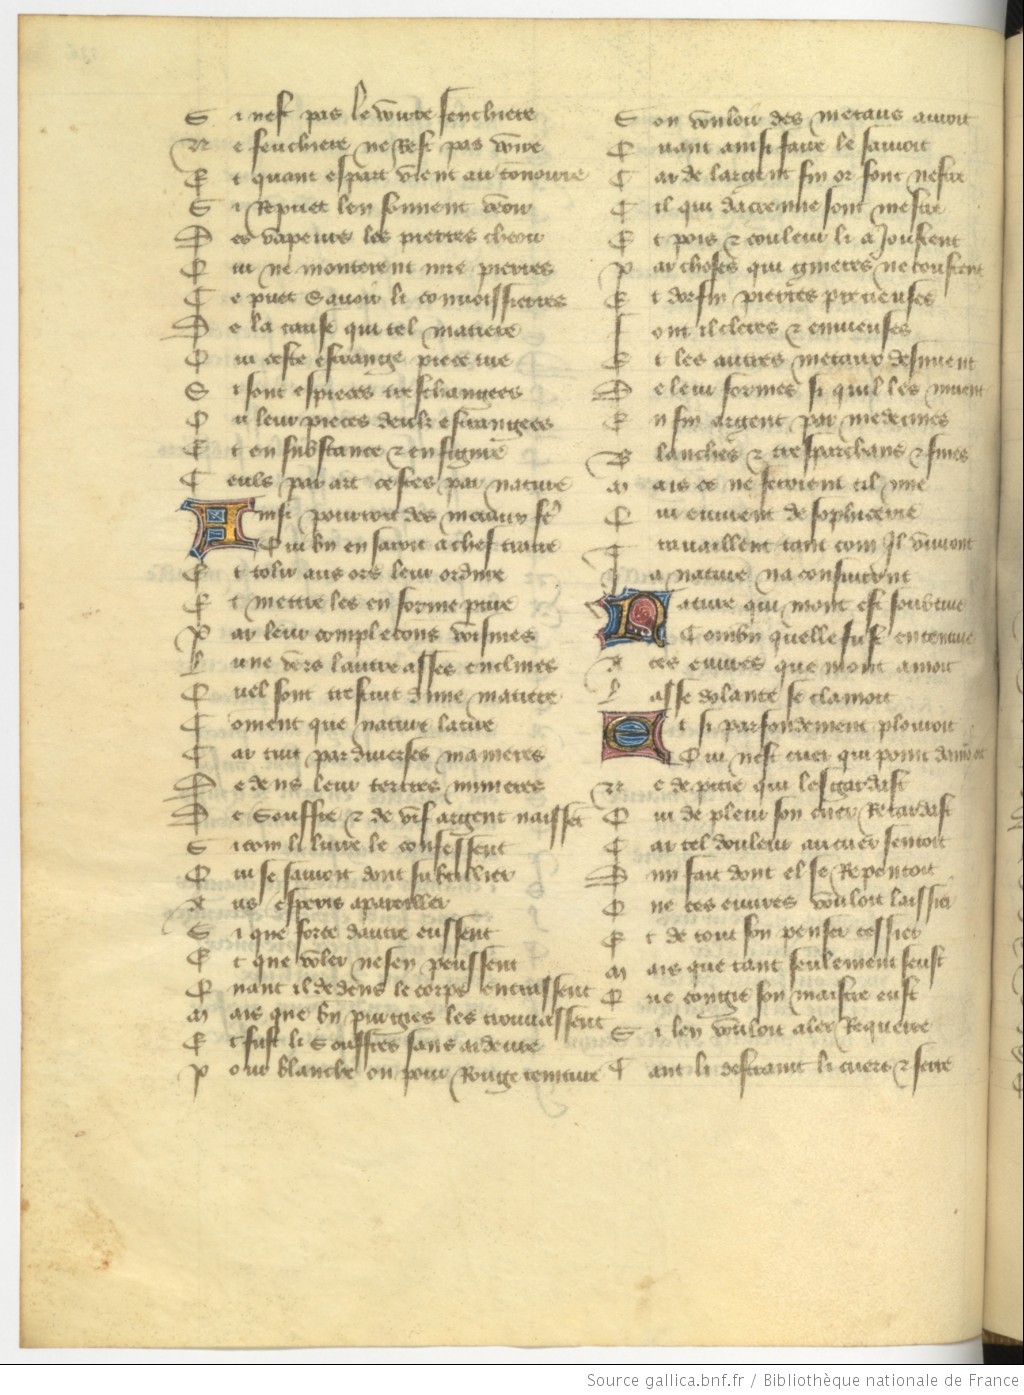 S i nest pas le voirre feuchiere
N e feuchiere ne Rest pas voire
E t quant espart vient au tonoirre
S i Repuet len souvent veoir
D es vapeurs les pierres cheoir
Q ui ne monterent mie pierres
C e puet Savoir li connoissierres
D e la cause qui tel matiere
Q ui ceste estrange piece
S i sont especes tres changees
O u leur pieces deulz estrangees
E t en substance z en figure
C euls par art cestes par nature
A insi pourroit des metaux
Q ui bn en savroit a chef traire
E t tolir aus ors leur ordure
E t mettre les en forme pure
P ar leur complecons voisines
L une vers lautre asses enclines
Q uel sont trestuit dune matiere
C oment que nature latire
C ar tuit par diverses manieres
D edens leur terrres minieres
D e Souffre z de vif argent naissent
S icom li livre le confessent
Q ui se savroit dont subtillier
A us esperis apareillier
S i que force dautre eussent
E t que voler nesen peussent
Q uant il dedens le corps entrassent
M ais que bn purgies les trouvassent
E t fust li Souffres sans ardeure
P our blanche ou pour Rouge teinture
S on vouloir des metaus auroit
Q uant ainsi faire le savroit
C ar de largent fin or font nestre
C il qui darrenne sont mestre
E t pois z couleur li ajoustent
P ar choses qui gueres ne coustent
E t dorfin pierres precieuses
F ont il cleres z envieuses
E t les autres metaux desnuent
D e leur formes si quil les muent
E n fin argent par medecines
B lanches z tresparchans z fines
M ais ce ne feroient cil mie
Q ui euvrent de sophicerie
T ravaillent tant com Il vivront
J a nature naconsuivront
N ature qui mont est soubtive
Combn quelle fust ententive
A ces euvres que mont amoit
L asse dolante se clamoit
E t si parfondement plouroit
Qui nest cuer qui point damor ot
N e de pitie qui lesgardast
Q ui de pleur son cuer Retardast
C ar tel douleur au cuer sentoit
D un fait dont el se Repentoit
Q ue ces euvres vouloit laissier
E t de tout son penser cessier
M ais que tant seulement seust
Q ue congie son maistre eust
S i len vouloit aler Requerre
T ant li destraint li cuers z serre